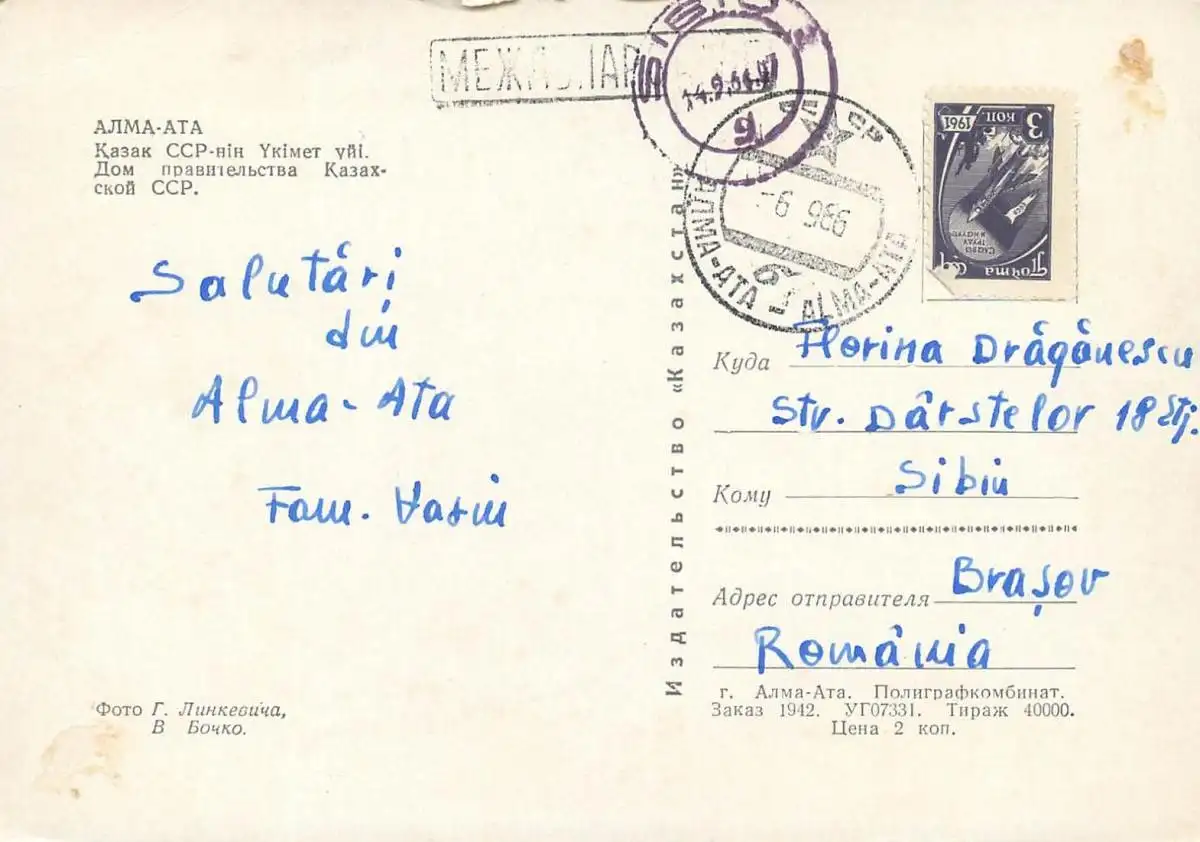 АЛМА-АТА
Қазак ССР-нің Үкімет үйі.
Дом правительства Казах-
ской ССР.
Salutări
din
Alma-Ata
Fam.
Фото Г. Линкевича,
В Бочко.
Издательство «Казахстан»
SIBIU
14.9.66.07
9
АЛМА-АТА
ALMA-ATA
-6 966
1961
3
КОП
Почта
Куда Florina Drăgănescu
Str. Dârstelor 18
Кому Sibiu
Адрес отправителя Brașov
România
г. Алма-Ата. Полиграфкомбинат.
Заказ 1942. УГ07331. Тираж 40000.
Цена 2 коп.